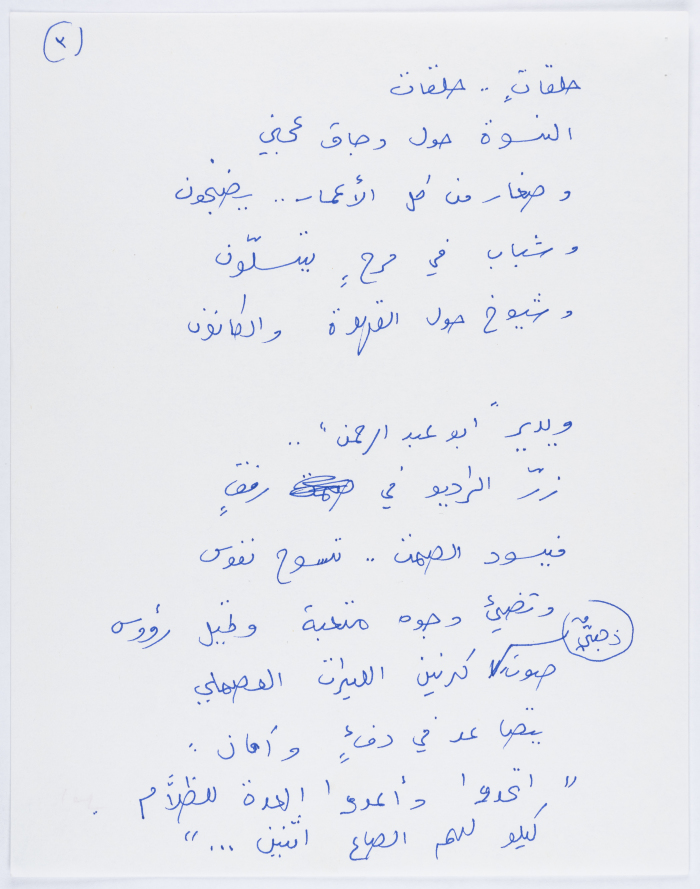 (٣)
حلقاتٍ .. حلقات
النسوة حول وجاق عجني
وصغار من كل الأعمار .. يضجون
وشباب في مرحٍ يتسلّون
وشيوخ حول القهوة والكانون
ويدير "ابو عبد الرحمن" ..
زرّ الراديو في رفقٍ
فيسود الصمت .. تسوح نفوس
وتضيئ وجوه متعبة وتميل رؤوس
ذهبيٌّ
صوت كرنين الليرات العصملي
يتصاعد في دفءٍ وأمان :
" اتحدوا وأعدوا العدة للظلاَّم .
كيلو للهم الصاع اثنين ... "